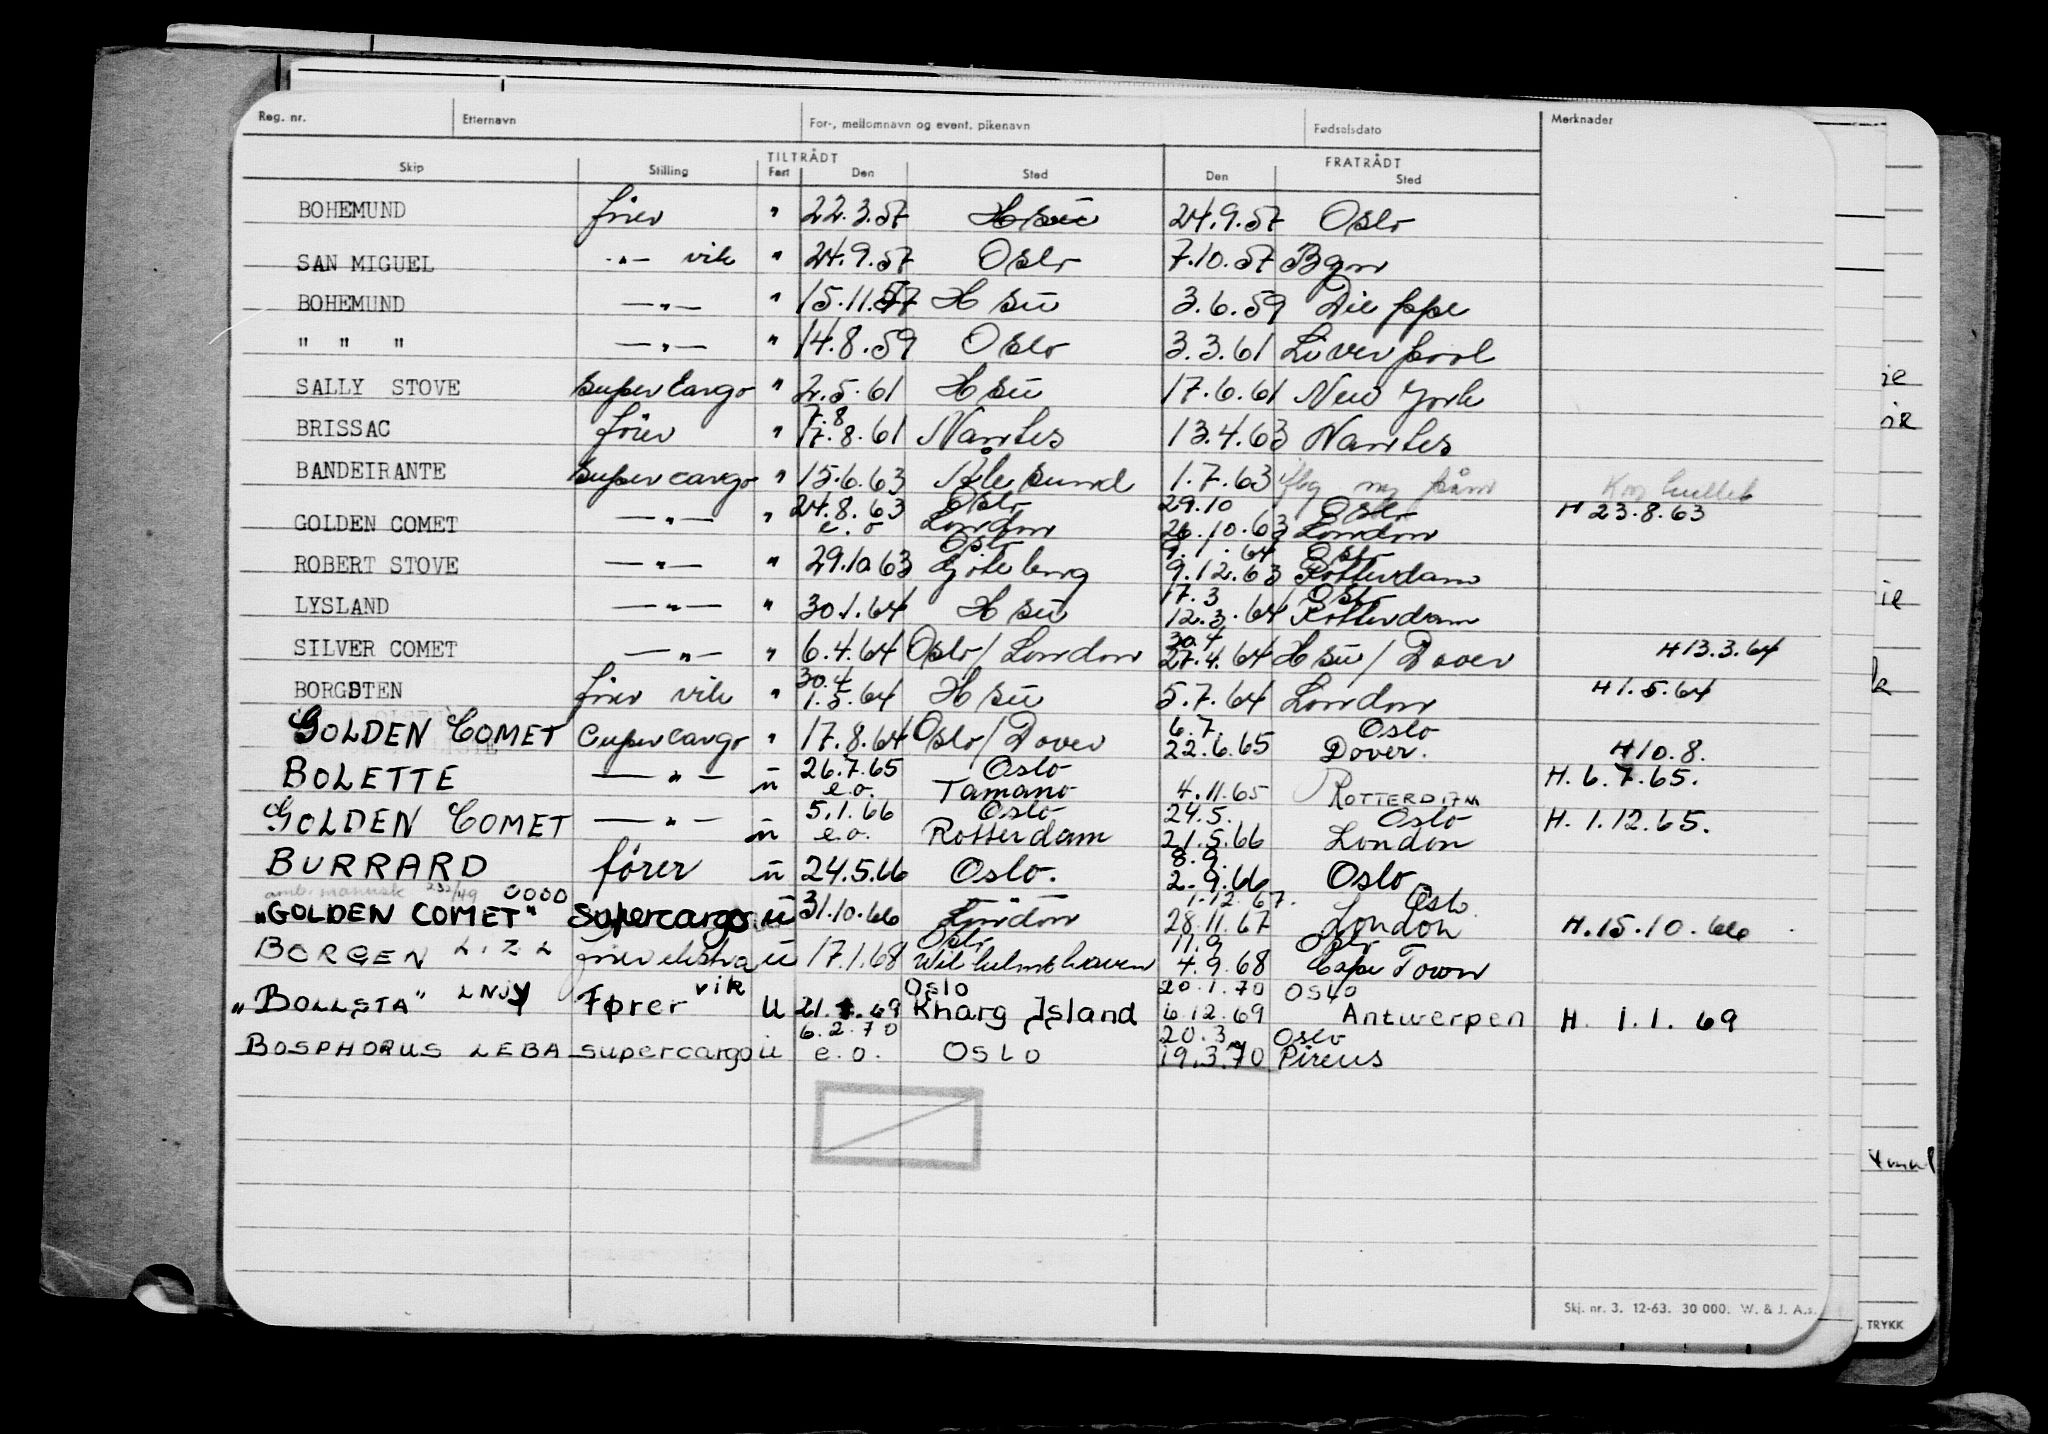 Reg. nr. Etternavn For-, mellomnavn og event. pikenavn Fødselsdato Merknader
TILTRÅDT FRATRÅDT
Skip Stilling Fart Den Sted Den Sted
BOHEMUND fører " 22.3.57 H su 24.9.57 Oslo
SAN MIGUEL -"- vik " 24.9.57 Oslo 7.10.57 Bgn
BOHEMUND -"- " 15.11.57 H su 3.6.59 Dieppe
" " " -"- " 14.8.59 Oslo 3.3.61 Liverpool
SALLY STOVE Supercargo " 2.5.61 H su 17.6.61 New York
7.8
BRISSAC fører " 17.8.61 Nantes 13.4.63 Nantes
BANDEIRANTE Supercargo " 15.6.63 Ålesund 1.7.63
24.8.63 Oslo 29.10 Oslo
GOLDEN COMET -"- " e.o London 26.10.63 London H 23.8.63
Oslo 9.1.64 Oslo
ROBERT STOVE -"- " 29.10.63 Göteborg 9.12.63 Rotterdam
17.3 Oslo
LYSLAND -"- " 30.1.64 H su 12.3.64 Rotterdam
30.4
SILVER COMET -"- " 6.4.64 Oslo/London 27.4.64 H su/Dover H 13.3.64
30.4
BORGSTEN fører vik " 1.5.64 H su 5.7.64 London H 1.5.64
6.7. Oslo
GOLDEN COMET Supercargo " 17.8.64 Oslo/Dover 22.6.65 Dover. H 10.8.
26.7.65 Oslo
BOLETTE -"- u e.o. Tamano 4.11.65 ROTTERDAM H. 6.7.65.
5.1.66 Oslo 24.5. Oslo
GOLDEN COMET -"- u e.o. Rotterdam 21.5.66 London H. 1.12.65.
8.9.
BURRARD fører u 24.5.66 Oslo. 2.9.66 Oslo
232/49 0000 1.12.67. Oslo
"GOLDEN COMET" Supercargo u 31.10.66 London 28.11.67 London H. 15.10.66
Oslo 11.9 Oslo
BORGEN LIZL fører ekstra u 17.1.68 Wilhelmshaven 4.9.68 Cape Town
vik Oslo 20.1.70 OSLO
"BOLLSTA" LNJY Fører u 21.1.69 Kharg Island 6.12.69 Antwerpen H. 1.1.69
6.2.70 20.3 Oslo
BOSPHORUS LEBA supercargo u e.o. OSLO 19.3.70 Pireus
Skj. nr. 3. 12-63. 30 000. W. & J. A.s.
. TRYKK